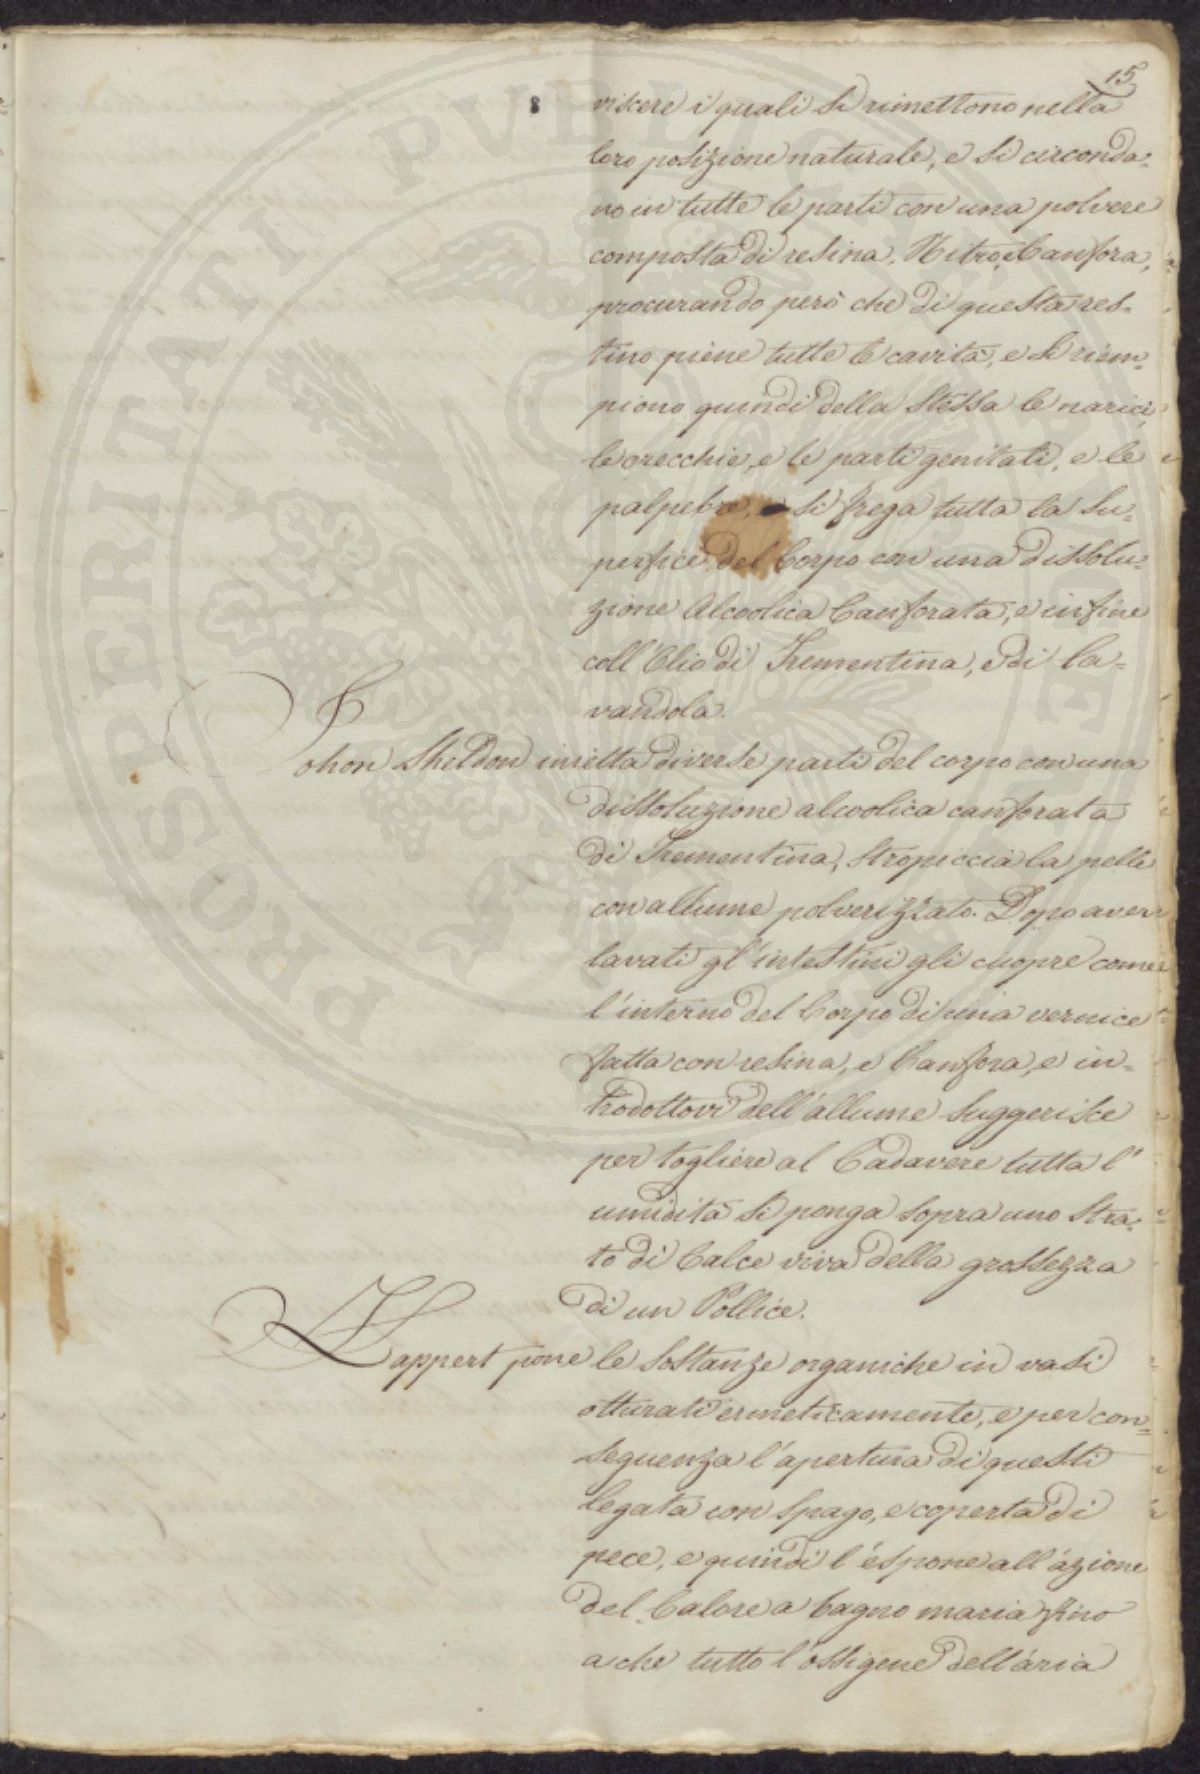 15
viscere i quali si rimettono nella
loro posizione naturale, e si circonda=
no in tutte le parti con una polvere
composta di resina, Nitro, e Canfora,
procurando però che di questa res=
tino piene tutte le cavità, e si riem=
piono quindi della stessa le narici,
le orecchie, e le parti genitali, e le
palpebre, e si frega tutta la su=
perfice del Corpo con una dissolu=
zione Alcoolica Canforata, e infine
coll'Olio di Trementina, e di la=
vandola.
Johon Sheldon inietta diverse parti del corpo con una
dissoluzione alcoolica canforata
di Trementina, stropiccia la pelle
con allume polverizzato. Dopo aver
lavati gl'intestini gli cuopre come
l'interno del Corpo di una vernice
fatta con resina, e Canfora, e in=
trodottovi dell'allume suggerisce
per togliere al Cadavere tutta l'
umidità si ponga sopra uno stra=
to di Calce viva della grossezza
di un Pollice.
Happert pone le sostanze organiche in vasi
otturati ermeticamente, e per con=
seguenza l'apertura di questi
legata con spago, e coperta di
pece, e quindi l'espone all'azione
del Calore a bagno maria fino
a che tutto l'ossigene dell'aria
PROSPERITATI PVBLICAE